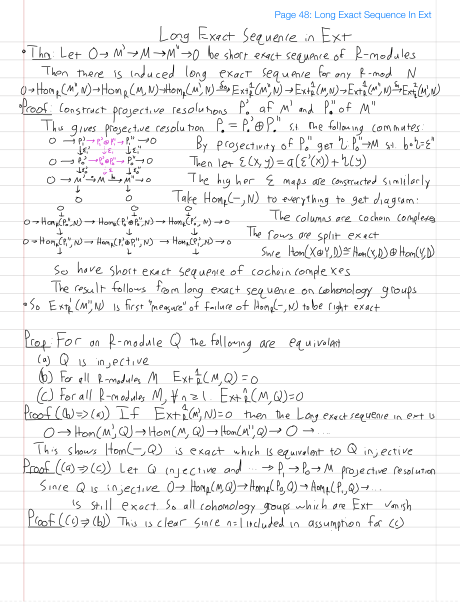 Page 48: Long Exact Sequence In Ext
Long Exact Sequence in Ext
• Thm: Let 0→M'→M→M"→0 be short exact sequence of R-modules
Then there is induced long exact sequence for any R-mod N
0→Hom_R(M",N)→Hom_R(M,N)→Hom_R(M',N)→Ext¹_R(M",N)→Ext¹_R(M,N)→Ext¹_R(M',N)
• Proof: Construct projective resolutions P.' of M' and P." of M"
This gives projective resolution P. = P.'⊕P." s.t. the following commutes.
0→P₁'→P₁'⊕P₁"→P₁"→0
By projectivity of P₀" get η P₀"→M st. b∘η=ε"
0→P₀'→P₀'⊕P₀"→P₀"→0
Then let ε(x,y)=a(ε'(x))+η(y)
0→M'→M→M"→0
The higher ε maps are constructed similarly
Take Hom_R(-,N) to everything to get diagram:
0→Hom_R(P₀",N)→Hom_R(P₀'⊕P₀",N)→Hom_R(P₀',N)→0
The columns are cochain complexes
The rows are split exact
0→Hom_R(P₁",N)→Hom_R(P₁'⊕P₁",N)→Hom_R(P₁',N)→0
Since Hom(X⊕Y,D)≅Hom(X,D)⊕Hom(Y,D)
So have short exact sequence of cochain complexes
The result follows from long exact sequence on cohomology groups
• So Ext¹_R(M",N) is first "measure" of failure of Hom_R(-,N) to be right exact
Prop: For an R-module Q the following are equivalent
(a) Q is injective
(b) For all R-modules M Ext¹_R(M,Q)=0
(c) For all R-modules M, ∀n≥1. Extⁿ_R(M,Q)=0
Proof((b)⇒(a)) If Ext¹_R(M",N)=0 then the Long exact sequence in ext is
0→Hom(M",Q)→Hom(M,Q)→Hom(M',Q)→0→...
This shows Hom(-,Q) is exact which is equivalent to Q injective
Proof((a)⇒(c)) Let Q injective and ...→P₁→P₀→M projective resolution
Since Q is injective 0→Hom_R(M,Q)→Hom_R(P₀,Q)→Hom_R(P₁,Q)→...
is still exact. So all cohomology groups which are Ext vanish
Proof((c)⇒(b)) This is clear since n=1 included in assumption for (c)